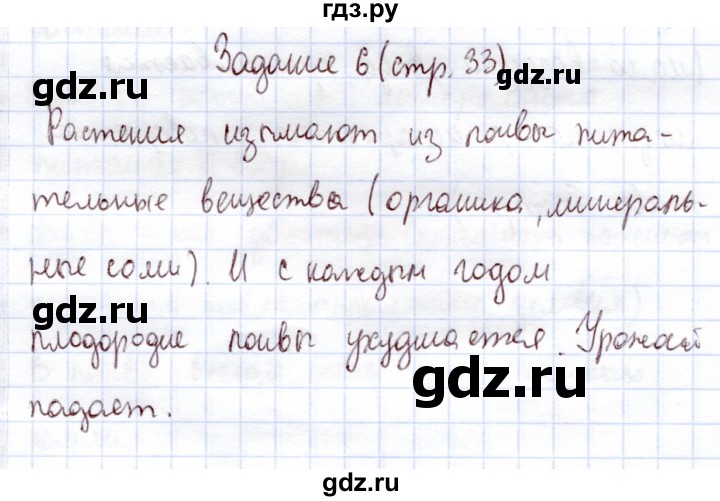 гдз.ру
Задание 6 (стр. 33)
gdz.ru
Растения изымают из почвы пита-
gdz.ru gdz.ru
тельные вещества (органика, минераль-
ные соли). И с каждым годом
плодородие почвы ухудшается. Урожай
gdz.ru gdz.ru
падает.
gdz.ru